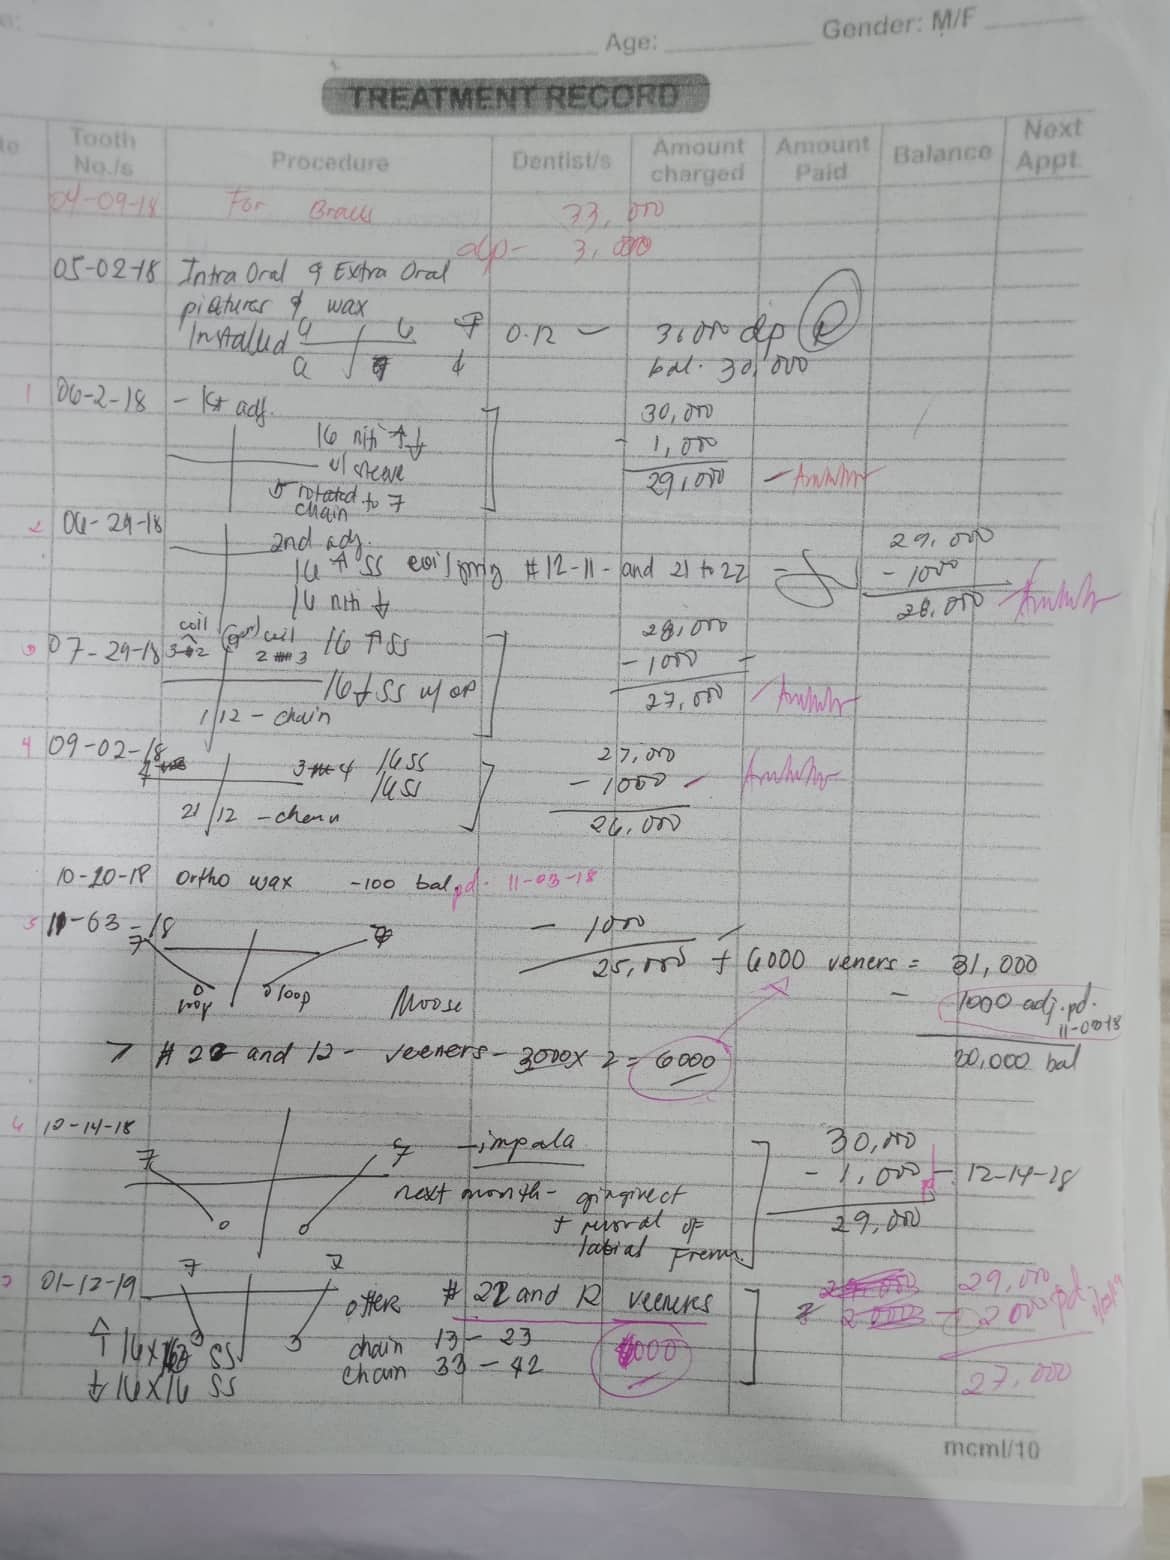 Age: Gender: M/F
TREATMENT RECORD
Tooth No./s Procedure Dentist/s Amount charged Amount Paid Balance Next Appt.
04-09-18 For Braces 33,000
dp- 3,000
05-02-18 Intra Oral & Extra Oral
pictures & wax
Installed 6 7 0.12 - 3,000 dp
bal. 30,000
1 06-2-18 - 1st adj. 30,000
16 niti ↑↓ - 1,000
w/ sleeve 29,000
5 rotated to 7
chain
2 06-29-18 2nd adj. 29,000
16 ↑ SS coil spring #12-11- and 21 to 22 - 1000
16 niti ↓ 28,000
3 07-29-18 coil 3 2 (open) coil 2 3 16 ↑ SS 28,000
- 1000
16 ↓ SS w/ OP 27,000
1/12 - chain
4 09-02-18 3 4 16 SS 27,000
16 SS - 1000
21/12 - chain 26,000
10-20-18 ortho wax -100 bal pd. 11-03-18
5 11-03-18 - 1000
7 7 25,000 + 6000 veners = 31,000
loop loop Moose - 1000 adj. pd.
7 # 22 and 12 - veeners - 3000 x 2 = 6000 30,000 bal
6 12-14-18
7 7 - impala 30,000
next month - gingivect - 1,000 - 12-14-18
+ removal of 29,000
labial Frenum
01-12-19 7 7 offers # 22 and 12 veeners 29,000
↑ 16x16 SS chain 13 - 23 2000 pd
↓ 16x16 SS chain 33 - 42 6000 27,000
mcml/10